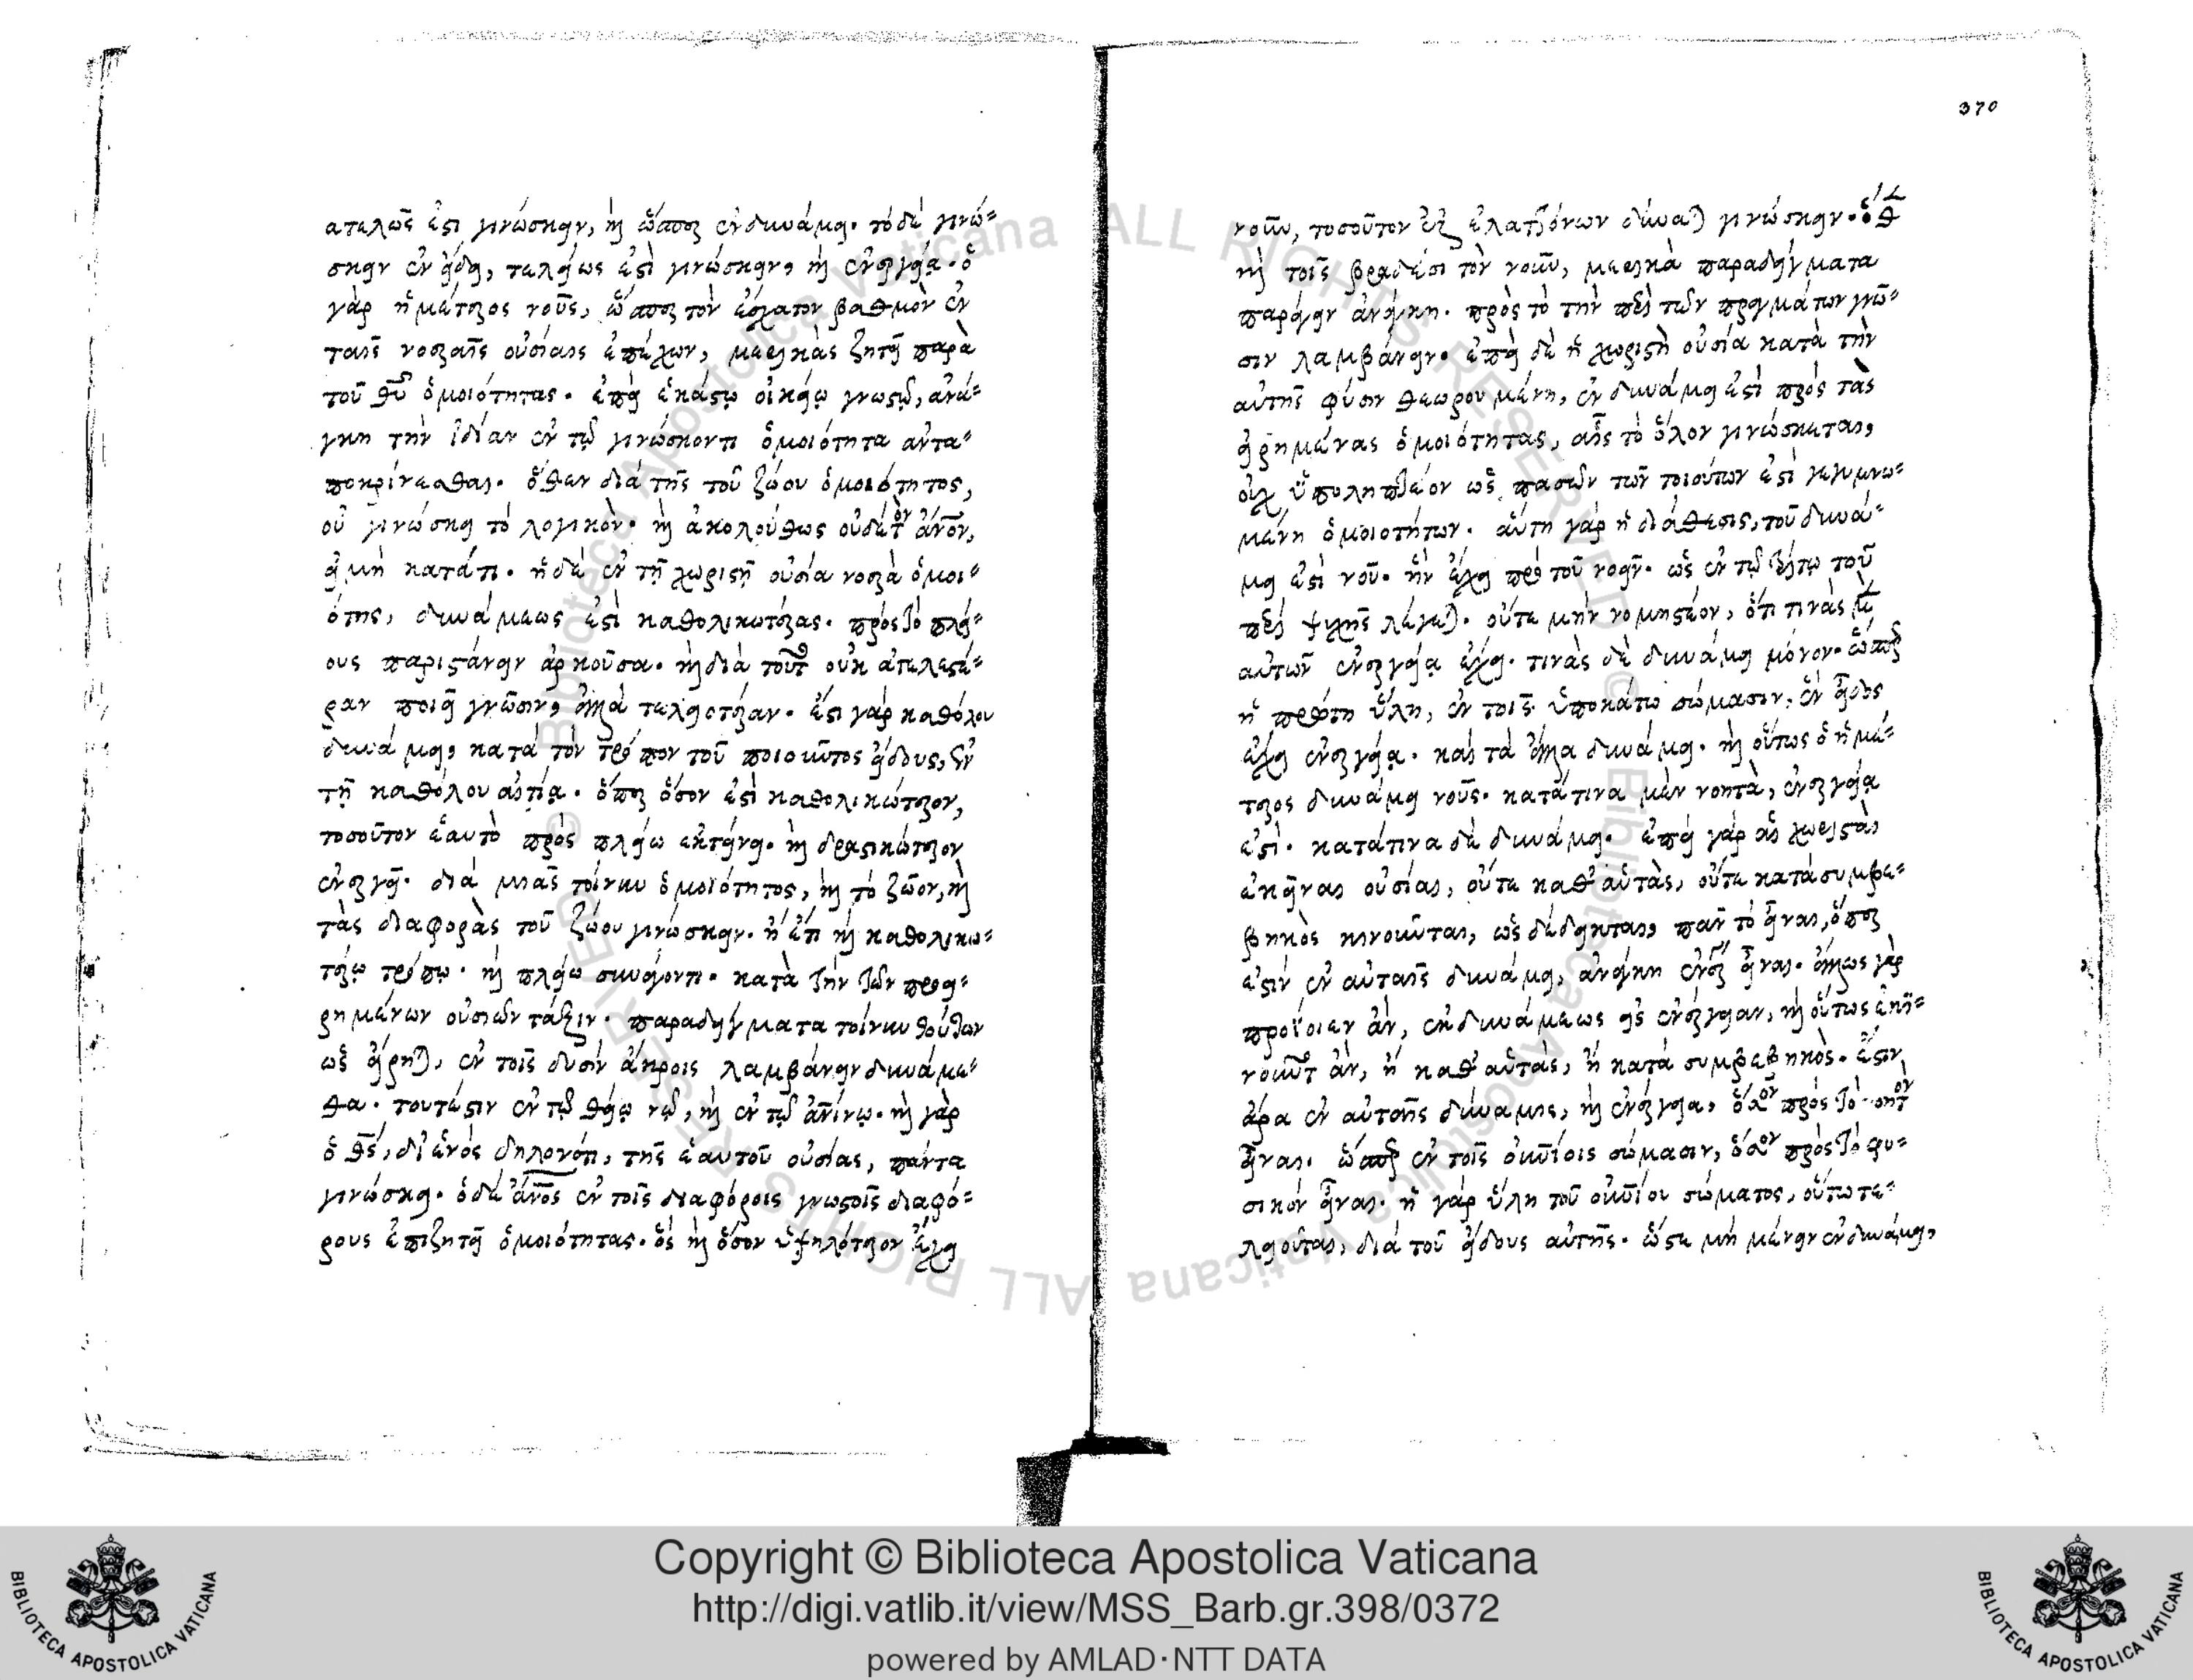 ἀτελῶς ἐστι γινώσκειν, καὶ ὥσπερ ἐν δυνάμει. τὸ δὲ γινώ-
σκειν ἐν εἴδει, τελείως ἐστὶ γινώσκειν, καὶ ἐνεργείᾳ. ὁ
γὰρ ἡμέτερος νοῦς, ὥσπερ τὸν ἔσχατον βαθμὸν ἐν
ταῖς νοεραῖς οὐσίαις ἐπέχων, μερικὰς ζητεῖ παρὰ
τοῦ θυ ὁμοιότητας. ἐπεὶ ἑκάστῳ οἰκείῳ γνωστῷ, ἀνά-
γκη τὴν ἰδίαν ἐν τῷ γινώσκοντι ὁμοιότητα ἀντα-
ποκρίνεσθαι. ὅθεν διὰ τῆς τοῦ ζώου ὁμοιότητος,
οὐ γινώσκει τὸ λογικὸν. καὶ ἀκολούθως οὐδὲ τὸν ἄνον,
εἰ μὴ κατά τι. ἡ δὲ ἐν τῇ χωριστῇ οὐσίᾳ νοερὰ ὁμοι-
ότης, δυνάμεως ἐστὶ καθολικωτέρας. πρὸς τὸ πλεί-
ους παριστάνειν ἀρκοῦσα. καὶ διὰ τοῦτο οὐκ ἀτελεστέ-
ραν ποιεῖ γνῶσιν, ἀλλὰ τελειοτέραν. ἔστι γὰρ καθόλου
δυνάμει, κατὰ τὸν τρόπον τοῦ ποιοῦντος εἴδους, ἐν
τῇ καθόλου αἰτίᾳ. ὅπερ ὅσον ἐστὶ καθολικώτερον,
τοσοῦτον ἑαυτὸ πρὸς πλείω ἐκτείνει. καὶ δραστικώτερον
ἐνεργεῖ. διὰ μιᾶς τοίνυν ὁμοιότητος, καὶ τὸ ζῶον, καὶ
τὰς διαφορὰς τοῦ ζώου γινώσκειν. ἢ ἔτι καὶ καθολικω-
τέρῳ τρόπῳ. καὶ πλείω συνάγοντι. κατὰ τὴν τῶν προει-
ρημένων οὐσιῶν τάξιν. παραδείγματα τοίνυν τούτων
ὡς εἴρηται, ἐν τοῖς δυσὶν ἄκροις λαμβάνειν δυνάμε-
θα. τουτέστιν ἐν τῷ θείῳ νῷ, καὶ ἐν τῷ ἀνίνῳ. καὶ γὰρ
ὁ θς, δι' ἑνός δηλονότι, τῆς ἑαυτοῦ οὐσίας, πάντα
γινώσκει. ὁ δὲ ἄνος ἐν τοῖς διαφόροις γνωστοῖς διαφό-
ρους ἐπιζητεῖ ὁμοιότητας. ὃς καὶ ὅσον ὑψηλότερον ἔχει
370
νοῦν, τοσοῦτον ἐξ ἐλαττόνων δύναται γινώσκειν. ὅθεν
καὶ τοῖς βραδέσι τὸν νοῦν, μερικὰ παραδείγματα
παράγειν ἀνάγκη. πρὸς τὸ τὴν περὶ τῶν πραγμάτων γνῶ-
σιν λαμβάνειν. ἐπεὶ δὲ ἡ χωριστὴ οὐσία κατὰ τὴν
αὐτῆς φύσιν θεωρουμένη, ἐν δυνάμει ἐστὶ πρὸς τὰς
εἰρημένας ὁμοιότητας, αἷς τὸ ὅλον γινώσκεται,
οὐχ ὑποληπτέον ὡς πασῶν τῶν τοιούτων ἐστὶ γεγυμνω-
μένη ὁμοιοτήτων. αὕτη γὰρ ἡ διάθεσις, τοῦ δυνά-
μει ἐστὶ νοῦ. ἣν ἔχει πρὸ τοῦ νοεῖν. ὡς ἐν τῷ τρίτῳ τοῦ
περὶ ψυχῆς λέγεται. οὔτε μὴν νομιστέον, ὅτι τινὰς μὲν
αὐτῶν ἐνεργείᾳ ἔχει. τινὰς δὲ δυνάμει μόνον. ὥσπερ
ἡ πρώτη ὕλη, ἐν τοῖς ὑποκάτω σώμασιν, ἓν εἶδος
ἔχει ἐνεργείᾳ. καὶ τὰ ἄλλα δυνάμει. καὶ οὕτως ὁ ἡμέ-
τερος δυνάμει νοῦς. κατά τινα μὲν νοητὰ, ἐνεργείᾳ
ἐστὶ. κατά τινα δὲ δυνάμει. ἐπεὶ γὰρ αἱ χωρισταὶ
ἐκεῖναι οὐσίαι, οὔτε καθ' αὑτὰς, οὔτε κατὰ συμβε-
βηκὸς κινοῦνται, ὡς δέδεικται, πᾶν τὸ εἶναι, ὅπερ
ἐστὶν ἐν αὐταῖς δυνάμει, ἀνάγκη ἐνεργείᾳ εἶναι. ἄλλως γὰρ
προΐοιεν ἂν, ἐκ δυνάμεως εἰς ἐνέργειαν, καὶ οὕτως ἐκι-
νοῦντο ἂν, ἢ καθ' αὑτὰς, ἢ κατὰ συμβεβηκὸς. ἔστιν
ἄρα ἐν αὐταῖς δύναμις, καὶ ἐνέργεια, ὅσον πρὸς τὸ νοητὸν
εἶναι. ὥσπερ ἐν τοῖς οὐνίοις σώμασιν, ὅσον πρὸς τὸ φυ-
σικὸν εἶναι. ἡ γὰρ ὕλη τοῦ οὐνίου σώματος, οὕτω τε-
λειοῦται, διὰ τοῦ εἴδους αὐτῆς. ὥστε μὴ μένειν ἐν δυνάμει,
Copyright © Biblioteca Apostolica Vaticana
http://digi.vatlib.it/view/MSS_Barb.gr.398/0372
powered by AMLAD·NTT DATA
BIBLIOTECA APOSTOLICA VATICANA
BIBLIOTECA APOSTOLICA VATICANA